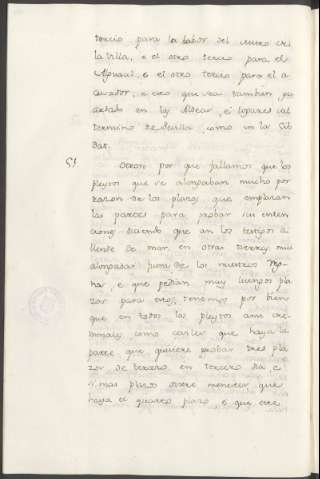 tercio para la labor del muro de
la Villa, e el otro tercio para el
Alguacil, e el otro tercio para el a
cusador, e esto que sea tambien gu
ardado en las Aldeas, e logares del
termino de Sevilla como en la Cib
dat.
51 Otrosi por que fallamos que los
pleytos que se alongaban mucho por
razon de los plazos que emplazan
las partes para probar su enten
cion, diciendo que an los testigos a
llende de mar en otras tierras mui
alongadas fuera de los nuestros Rey
nos e que pedian muy luengos pla
zos para esto; tenemos por bien
que en todos los pleytos ansi cre
minales como ceviles que haya la
parte que quisiere probar tres pla
zos de tercero en tercero dia, e
si mas plazo oviere menester que
haya el quarto plazo e que este